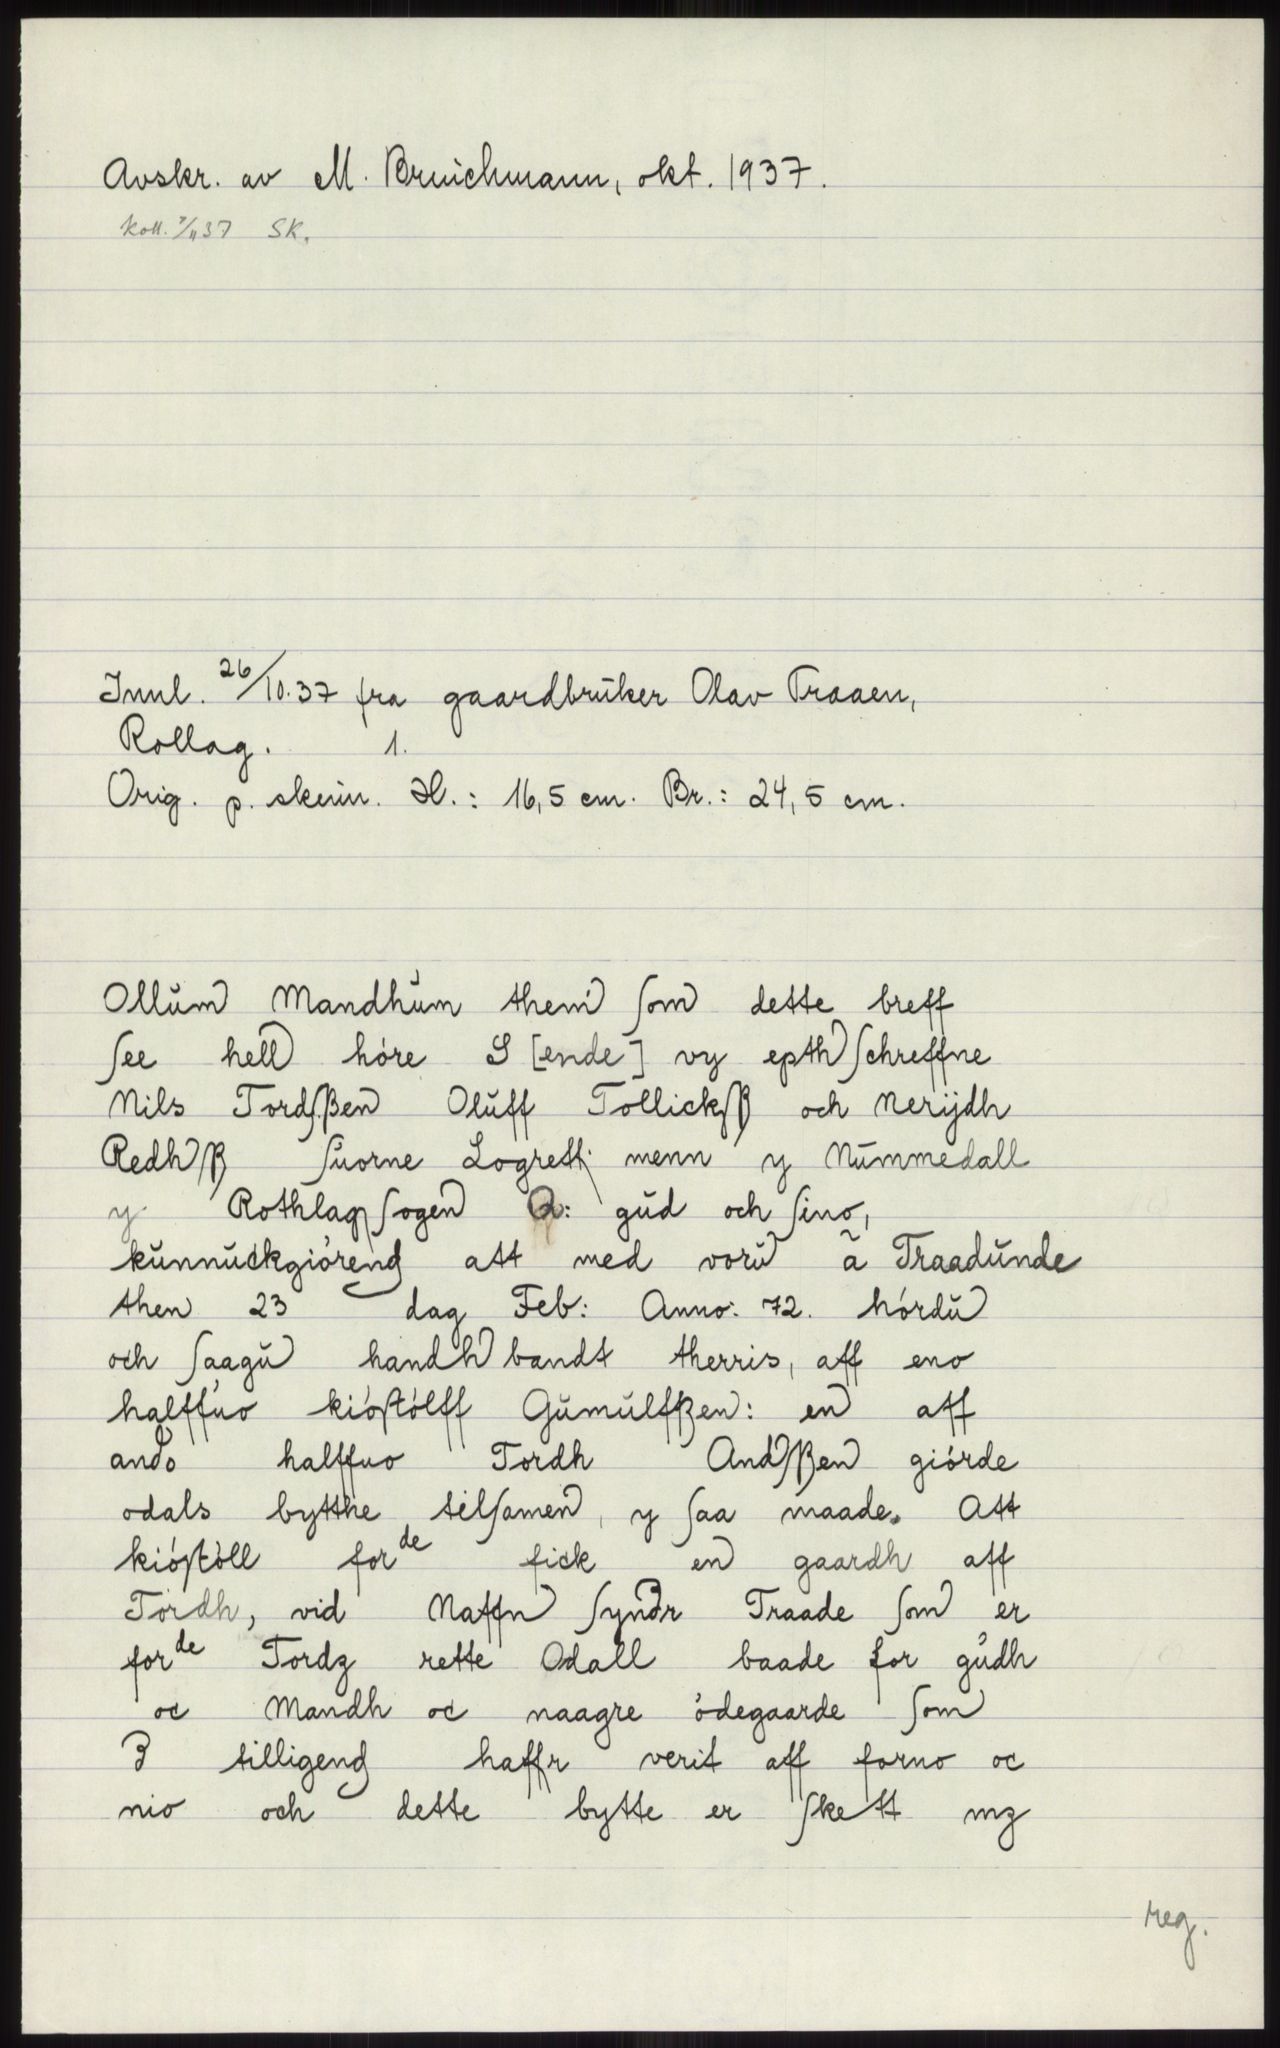 Avskr. av M. Bruichmann, okt. 1937.
Koll. 3/11 37 SK.
Innl. 26/10.37 fra gaardbruker Olav Traaen,
Rollag. 1.
Orig. p. skinn. H.: 16,5 cm. Br.: 24,5 cm.
Ollum Mandhum them som dette breff
see hell hóre S [ende] vy epth schreffne
Nils Tordßen Oluff Tollickß och Nerijdh
Redhß suorne Logrett menn y Nummedall
y Rothlag sogen Q: gud och sino,
kunnuckgiórend att med voru ä Traadunde
then 23 dag Feb: Anno: 72. hórdu
och saagu handh bandt therris, aff eno
halffuo kióstólff Gumulfßen: en aff
ando halffuo Tordh Andßen giórde
odals bytthe tilsamen, y saa maade. Att
kióstóll forde fick en gaardh aff
Tordh, vid Naffn syndr Traade som er
forde Tordz rette Odall baade for gudh
oc Mandh oc naagre ódegaarde som
3 tilligend haffr verit aff forno oc
nio och dette bytte er skett mz
reg.